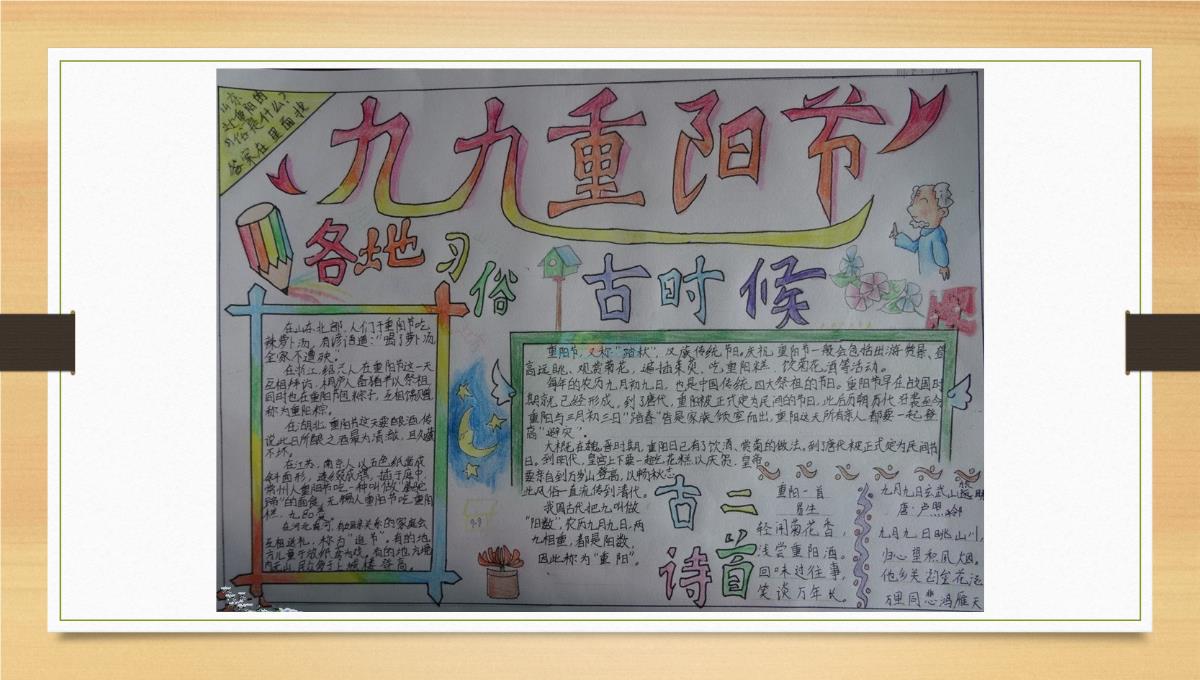 山东
赴重阳的
习俗是什么?
答案在里面找
九九重阳节
各地习俗
古时候
在山东北部,人们于重阳节吃
辣萝卜汤,有谚语道:“喝了萝卜汤
全家不遭殃。”
在浙江绍兴人在重阳节这一天
互相拜访,
同时也在重阳节
称为重阳粽。
在湖北重阳节这天要酿酒,传
说此日所酿之酒最为清
不坏。
在江苏,南京人以五色纸
斜面形,
人重阳节吃一种叫做
的面食,无锡人重阳节吃重阳
糕、九品羹
的家庭会
互相送礼,称为“追节”。有的地
方儿童于放纸鸢为戏,有的地方
重阳节,又称“踏秋”,汉族传统节日。庆祝重阳节一般会包括出游赏景、登
高远眺、观赏菊花、遍插茱萸、吃重阳糕、饮菊花酒等活动。
每年的农历九月初九日,也是中国传统四大祭祖的节日。重阳节早在战国时
期就已经形成,到了唐代,重阳被正式定为民间的节日,此后历朝历代沿袭至今
重阳与三月初三日“踏春”皆是家族倾室而出,重阳这天所有亲人都要一起登
高“避灾”。
大概在魏晋时期,重阳日已有了饮酒、赏菊的做法。到了唐代被正式定为民间节
日。到明代,皇宫上下要一起吃花糕以庆贺,皇帝
要亲自到万岁山登高,以畅秋志
此风俗一直流传到清代。
我国古代把九叫做
“阳数”,农历九月九日,两
九相重,都是阳数,
因此称为“重阳”。
古诗二首
重阳一首
昌生
轻闻菊花香,
浅尝重阳酒。
回味过往事,
笑谈万年长。
九月九日玄武山旅眺
唐·卢照邻
九月九日眺山川,
归心望积风烟。
他乡共
万里同悲鸿雁天
9.9